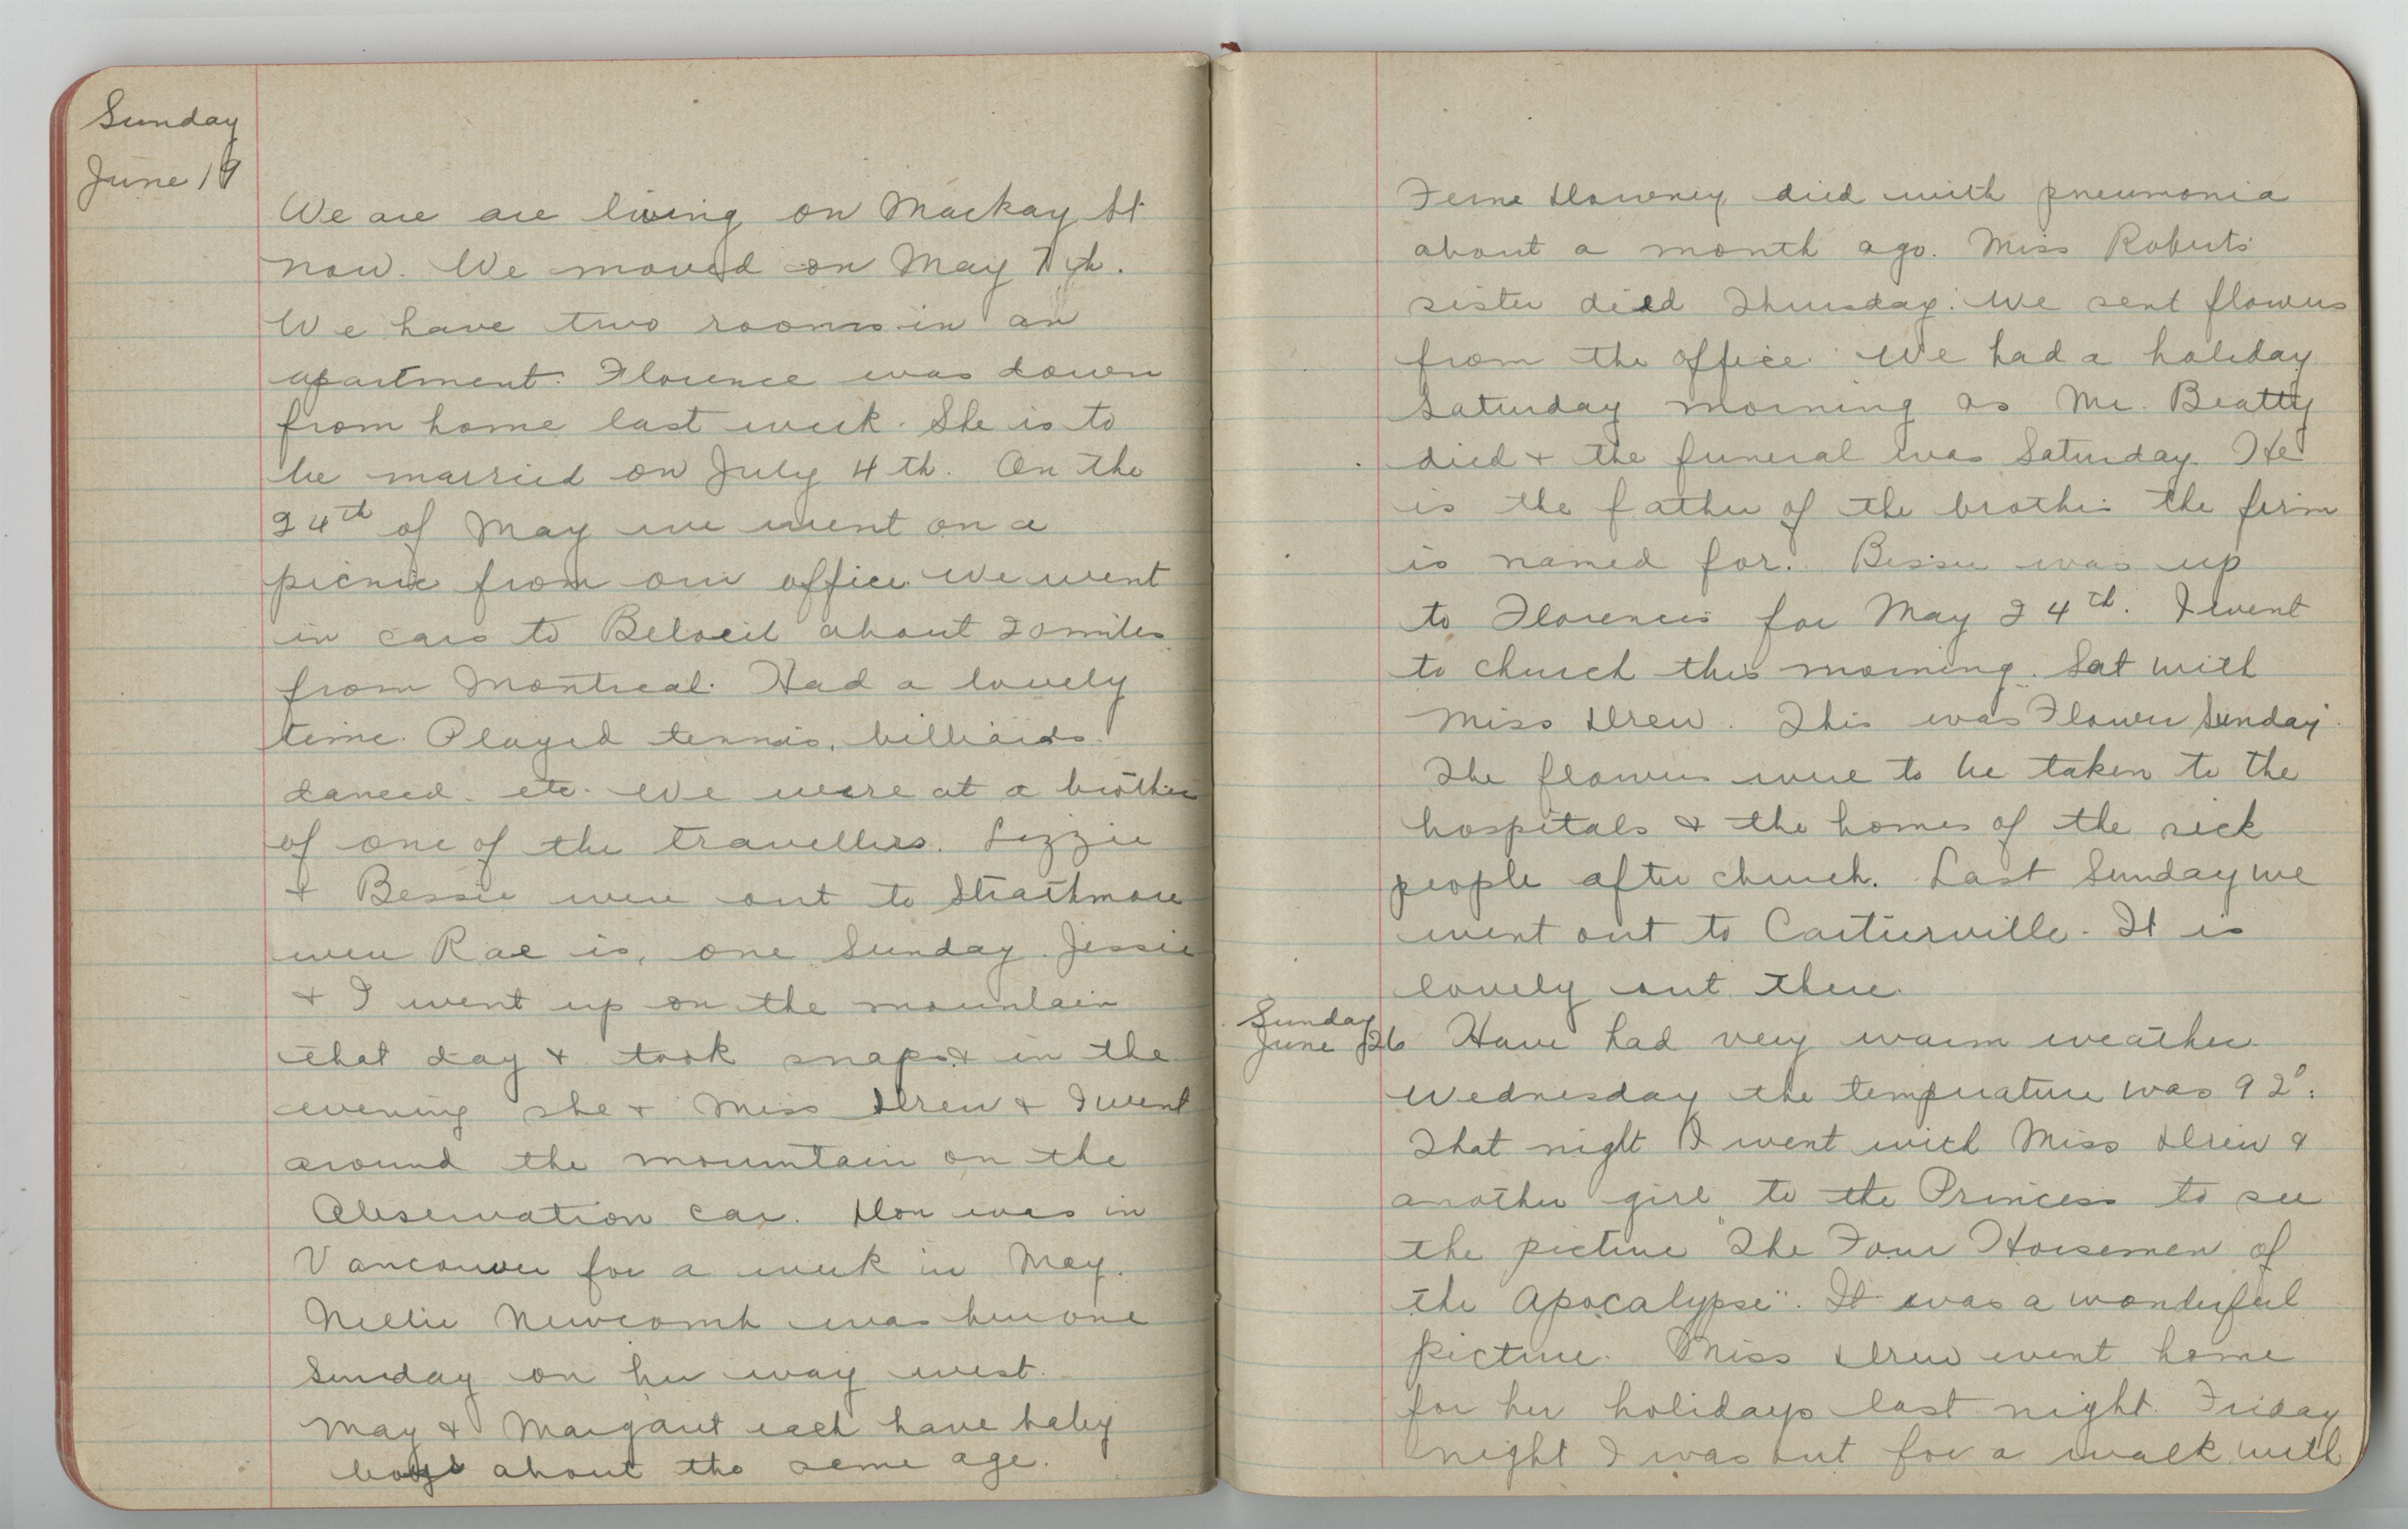 Sunday
June 19
We are are living on Mackay St
now. We moved on May 7th.
We have two rooms in an
apartment. Florence was down
from home last week. She is to
be married on July 4th. On the
24th of May we went on a
picnic from our office. We went
in cars to Beloeil about 20 miles
from Montreal. Had a lovely
time. Played tennis, billiards.
danced. etc. We were at a brother
of one of the travellers. Lizzie
& Bessie were out to Strathmore
were Rae is, one Sunday. Jessie
& I went up on the mountain
that day & took snaps & in the
evening she & Miss Drew & I went
around the mountain on the
Observation car. Don was in
Vancouver for a week in May.
Nellie Newcomb was here one
Sunday on her way west.
May & Margaret each have baby
boys about the same age.
Ferne Downey died with pneumonia
about a month ago. Miss Roberts
sister died Thursday. We sent flowers
from the office. We had a holiday
Saturday morning as Mr. Beatty
died & the funeral was Saturday. He
is the father of the brothers the firm
is named for. Bessie was up
to Florences for May 24th. I went
to church this morning. Sat with
Miss Drew. This was Flower Sunday.
The flowers were to be taken to the
hospitals & the homes of the sick
people after church. Last Sunday we
went out to Cartierville. It is
lovely out there.
Sunday
June 26 Have had very warm weather.
Wednesday the temperature was 92°.
That night I went with Miss Drew &
another girl to the Princess to see
the picture "The Four Horsemen of
the Apocalypse". It was a wonderful
picture. Miss Drew went home
for her holidays last night. Friday
night I was out for a walk with